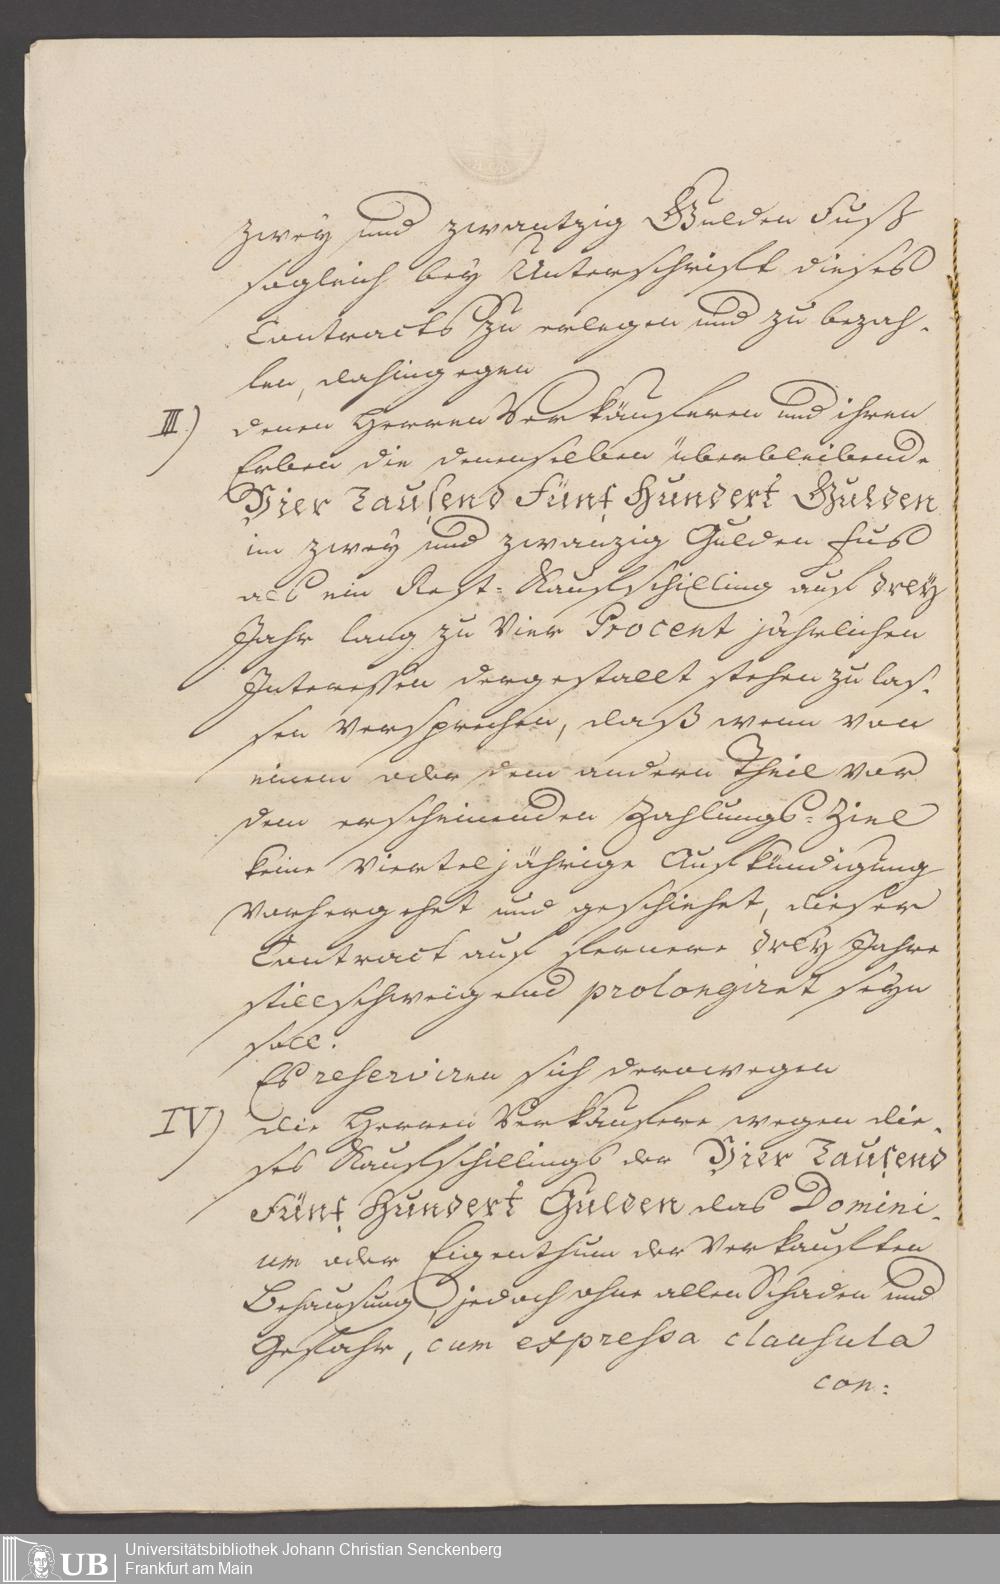 zwey und zwantzig Gulden Fuß
sogleich bey Unterschrifft dieses
Contracts zu erlegen und zu bezah-
len, dahingegen
III.) denen Herren Verkäufferen und ihren
Erben die denenselben überbleibende
Vier Tausend Fünf Hundert Gulden
im zwey und zwanzig Gulden Fus
als ein Rest-Kauffschilling auf drey
Jahr lang zu Vier Procent jährlichen
Interessen dergestallt stehen zu las-
sen versprechen, daß wenn von
einem oder dem andern Theil vor
dem erscheinenden Zahlungs-Ziel
keine vierteljährige Aufkündigung
vorhergehet und geschiehet, dieser
Contract auf fernere drey Jahre
stillschweigend prolongiret seyn
soll.
Es reserviren sich derowegen
IV) die Herren Verkäuffere wegen die-
ses Kauffschillings der Vier Tausend
Fünf Hundert Gulden das Domini-
um oder Eigenthum der verkaufften
Behausung, jedoch ohne allen Schaden und
Gefahr, cum expressa clausula
con:
Universitätsbibliothek Johann Christian Senckenberg
Frankfurt am Main
UB